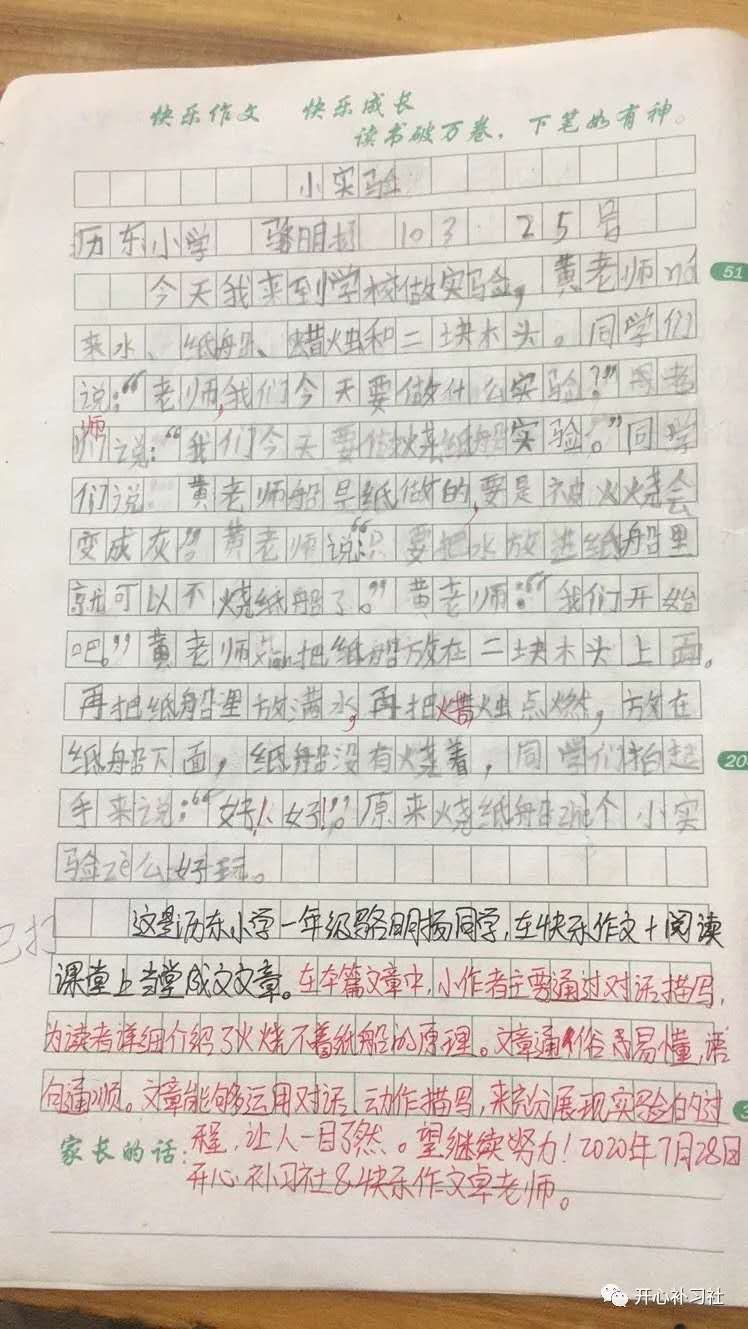 快乐作文 快乐成长
读书破万卷，下笔如有神。
小实验
历东小学 骆明扬 103 25号
今天我来到学校做实验，黄老师ná
51
来水、纸船、蜡烛和二块木头。同学们
说：“老师，我们今天要做什么实验？”老
师说：“我们今天要做烧纸船实验。”同学
们说 黄老师船是纸做的，要是被火烧会
变成灰”黄老师说：“只要把水放进纸船里
就可以不烧纸船了。”黄老师：“我们开始
吧。”黄老师xian把纸船放在二块木头上面。
再把纸船里放满水，再把蜡烛点燃，放在
纸船下面，纸船没有烧着，同学们拍起
20
手来说：“好！好！”原来烧纸船这个小实
验这么好玩。
已打
这是历东小学一年级骆明扬同学，在快乐作文+阅读
课堂上当堂成文文章。在本篇文章中，小作者主要通过对话描写，
为读者详细介绍了火烧不着纸船的原理。文章通俗易懂，语
句通顺。文章能够运用对话、动作描写，来充分展现实验的过
家长的话：程，让人一目了然。望继续努力！2020年7月28日
开心补习社&快乐作文卓老师。
开心补习社